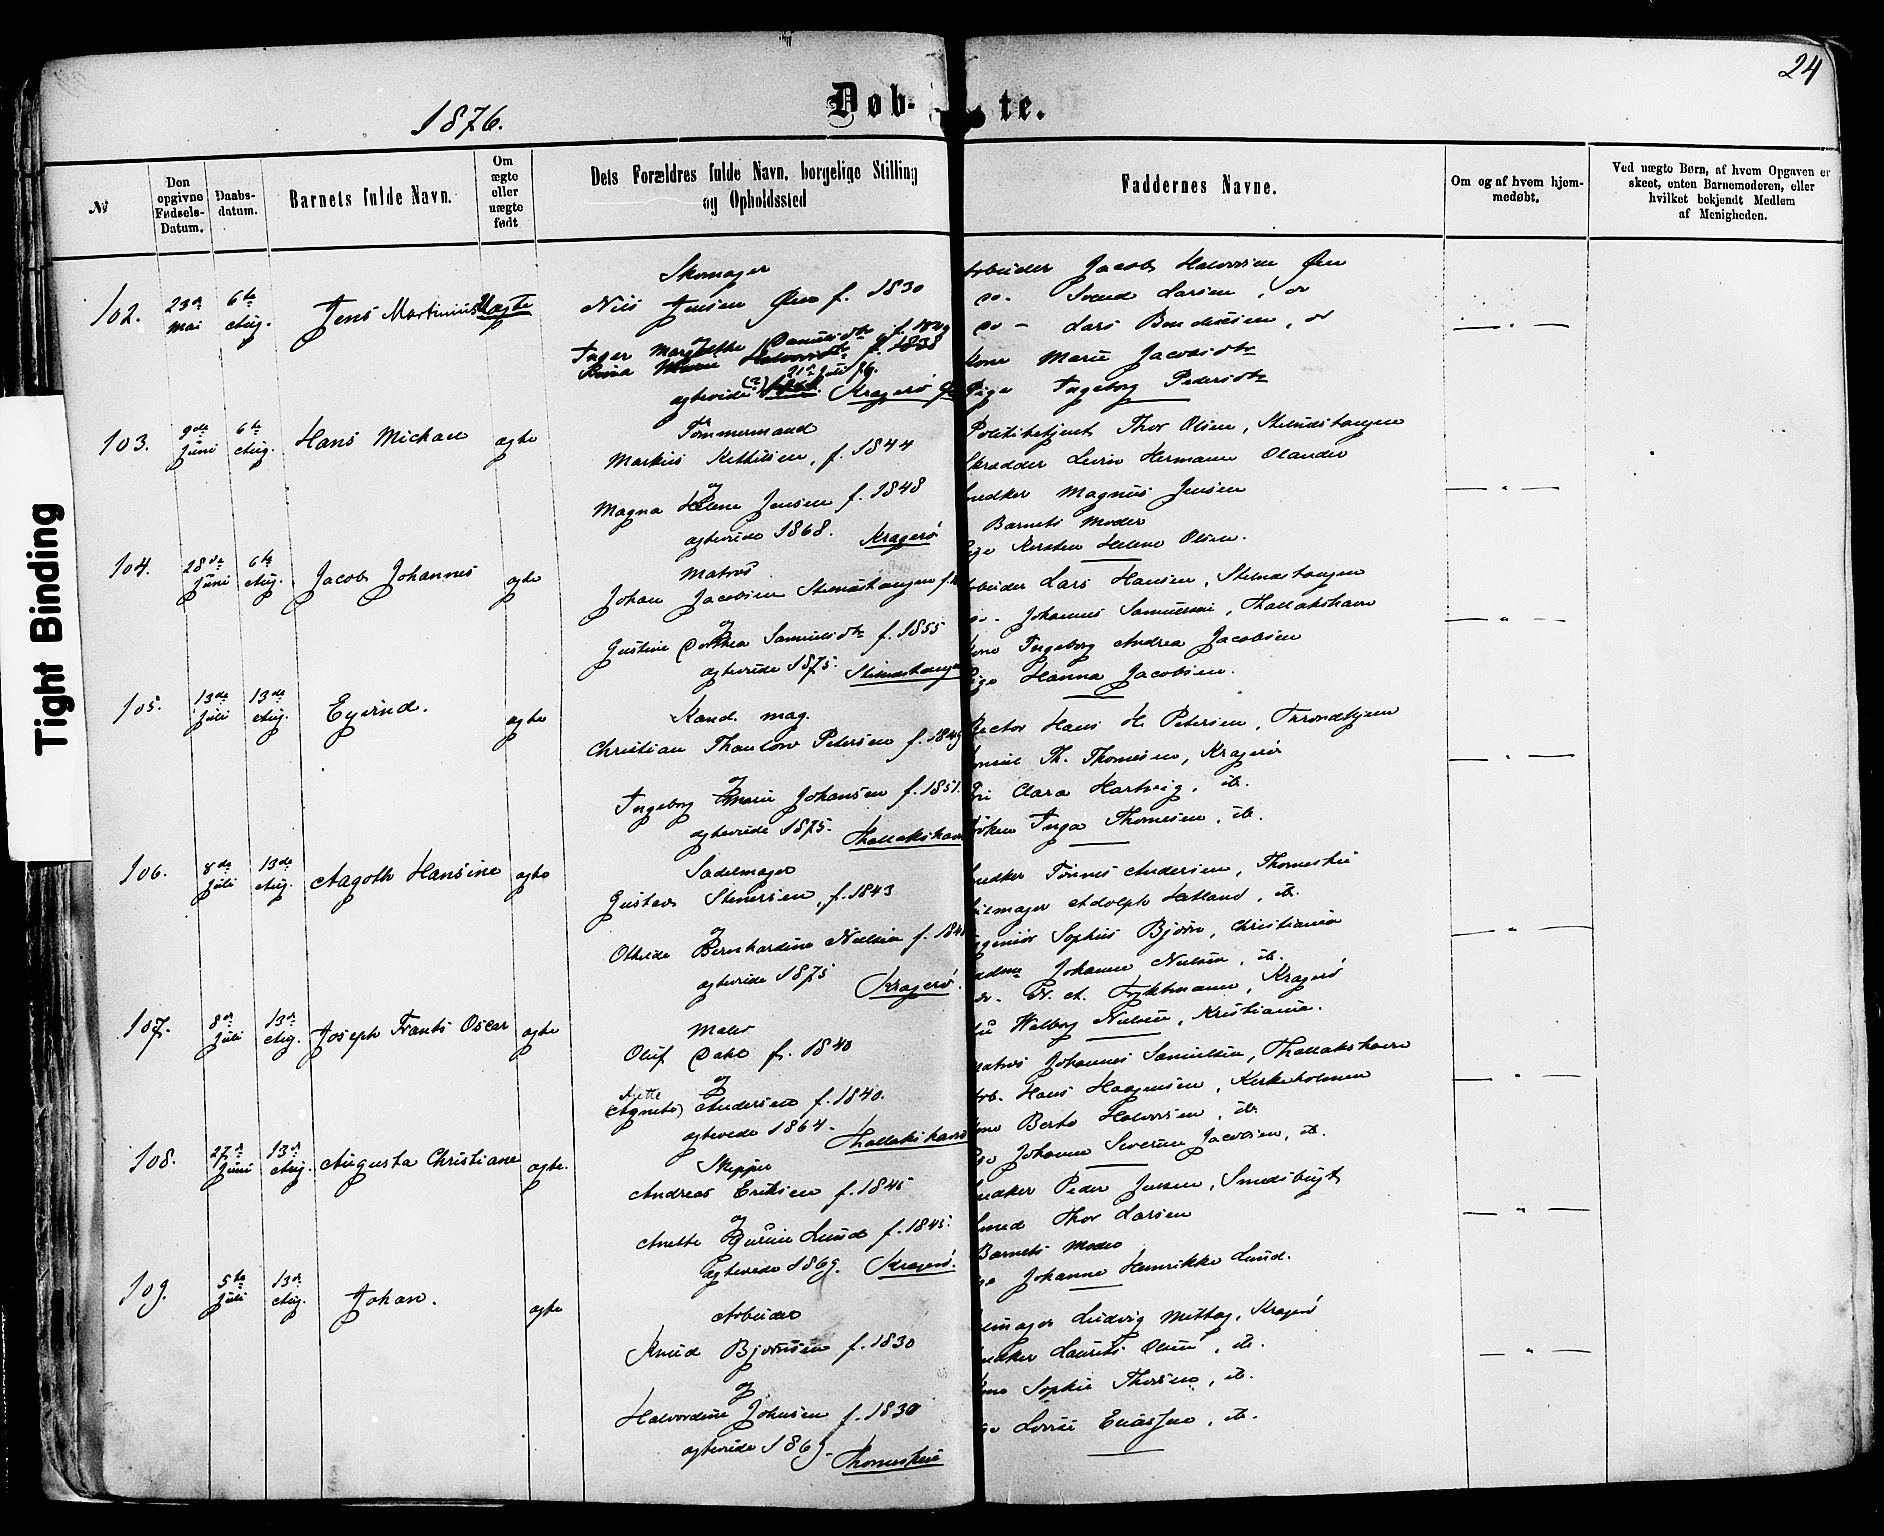 24
Døb- te.
1876.
Tight Binding
№
Den opgivne Fødsels-Datum.
Daabs-datum.
Barnets fulde Navn.
Om ægte eller uægte født
Dets Forældres fulde Navn, borgelige Stilling og Opholdssted
Faddernes Navne.
Om og af hvem hjem-medøbt.
Ved uægte Børn, af hvem Opgaven er skeet, enten Barnemoderen, eller hvilket bekjendt Medlem af Menigheden.
102. 23de Mai 6te Aug. Jens Martinius Uægte
Skomager
Nils Jensen Øen f. 1830
og
Inger Margrethe Danielsdtr f.
Halvorsdtr f. 1838
21de Juli 76.
Kragerø
Arbeider Jacob Halvorsen Øen
do- Svend Larsen, do
do- Lars Bendixsen, do
Kone Marie Jacobsdtr
Pige Ingeborg Pedersdtr
103. 9de Juni 6te Aug. Hans Michael ægte
Tømmermand
Markus Kittilsen, f. 1844
og
Magna Helene Jensen f. 1848
ægteviede 1868. Kragerø
Politibetjent Thor Olsen, Stilnestangen
Skrædder Levin Hermann Olander
Snedker Magnus Jensen
Barnets Moder
Pige Kirsten Helene Olsen.
104. 28de Juni 6te Aug. Jacob Johannes ægte
Matros
Johan Jacobsen Stilnestangen f.
og
Gustine Dorthea Samuelsdtr f. 1855
ægteviede 1875. Stilnestangen
Arbeider Lars Hansen, Stilnestangen
do- Johannes Samuelsen, Thallakshavn
Kone Ingeborg Andrea Jacobsen
Pige Hanna Jacobsen.
105. 13de Juli 13de Aug. Eyvind. ægte
Kand. mag.
Christian Thaulow Petersen f. 1849
og
Ingeborg Marie Johansen f. 1851.
ægteviede 1875. Thallakshavn
Rector Hans H. Petersen, Throndhjem
Konsul Th. Thomesen, Kragerø
Fru Clara Hartvig, ib.
Frøken Inga Thomesen, ib.
106. 8de Juli 13de Aug. Aagoth Hansine ægte
Sadelmager
Gustav Stenersen, f. 1843
og
Othilde Bernhardine Nielsen f. 184
ægteviede 1875 Kragerø.
Snedker Tønnes Andersen, Thomeshei
Adolph Hetland, ib.
Ingeniør Sophus Bjørn, Christiania
Madme Johanne Nielsen, ib.
do- Fryktmann, Kragerø
Walborg Nielsen, Kristiania.
107. 8de Juli 13de Aug. Joseph Frants Oscar ægte
Maler
Oluf Dahl f. 1840
og
Agnete Andersen f. 1840.
ægtevede 1864. Thallakshavn
Matros Johannes Samuelsen, Thallakshavn
Arb. Hans Haagensen, Kirkeholmen
Kone Berte Halvorsen, ib.
Pige Johanne Severine Jacobsen, ib.
108. 27de Juni 13de Aug. Augusta Christiane ægte.
Skipper
Andreas Eriksen f. 1845
og
Anette Gurine Lund f. 1845.
ægtevede 1869. Kragerø.
Snedker Peder Jensen, Smedsbugt
Smed Thor Larsen
Barnets Moder
Pige Johanne Henrikke Lund.
109. 5te Juli 13de Aug. Johan. ægte
Arbeider
Knud Bjørnsen f. 1830
og
Halvordine Johnsen f. 1830
ægteviede 1869. Thomeshei
Ludvig Mittag, Kragerø
Snedker Laurits Olsen, ib.
Kone Sophie Thorsen, ib.
Pige Lovise Eliassen, ib.